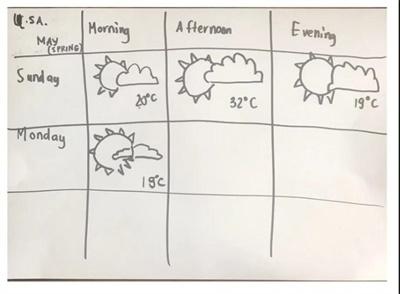 U.SA.
MAY
(SPRING)
Morning
Afternoon
Evening
Sunday
20°C
32°C
19°C
Monday
19°C